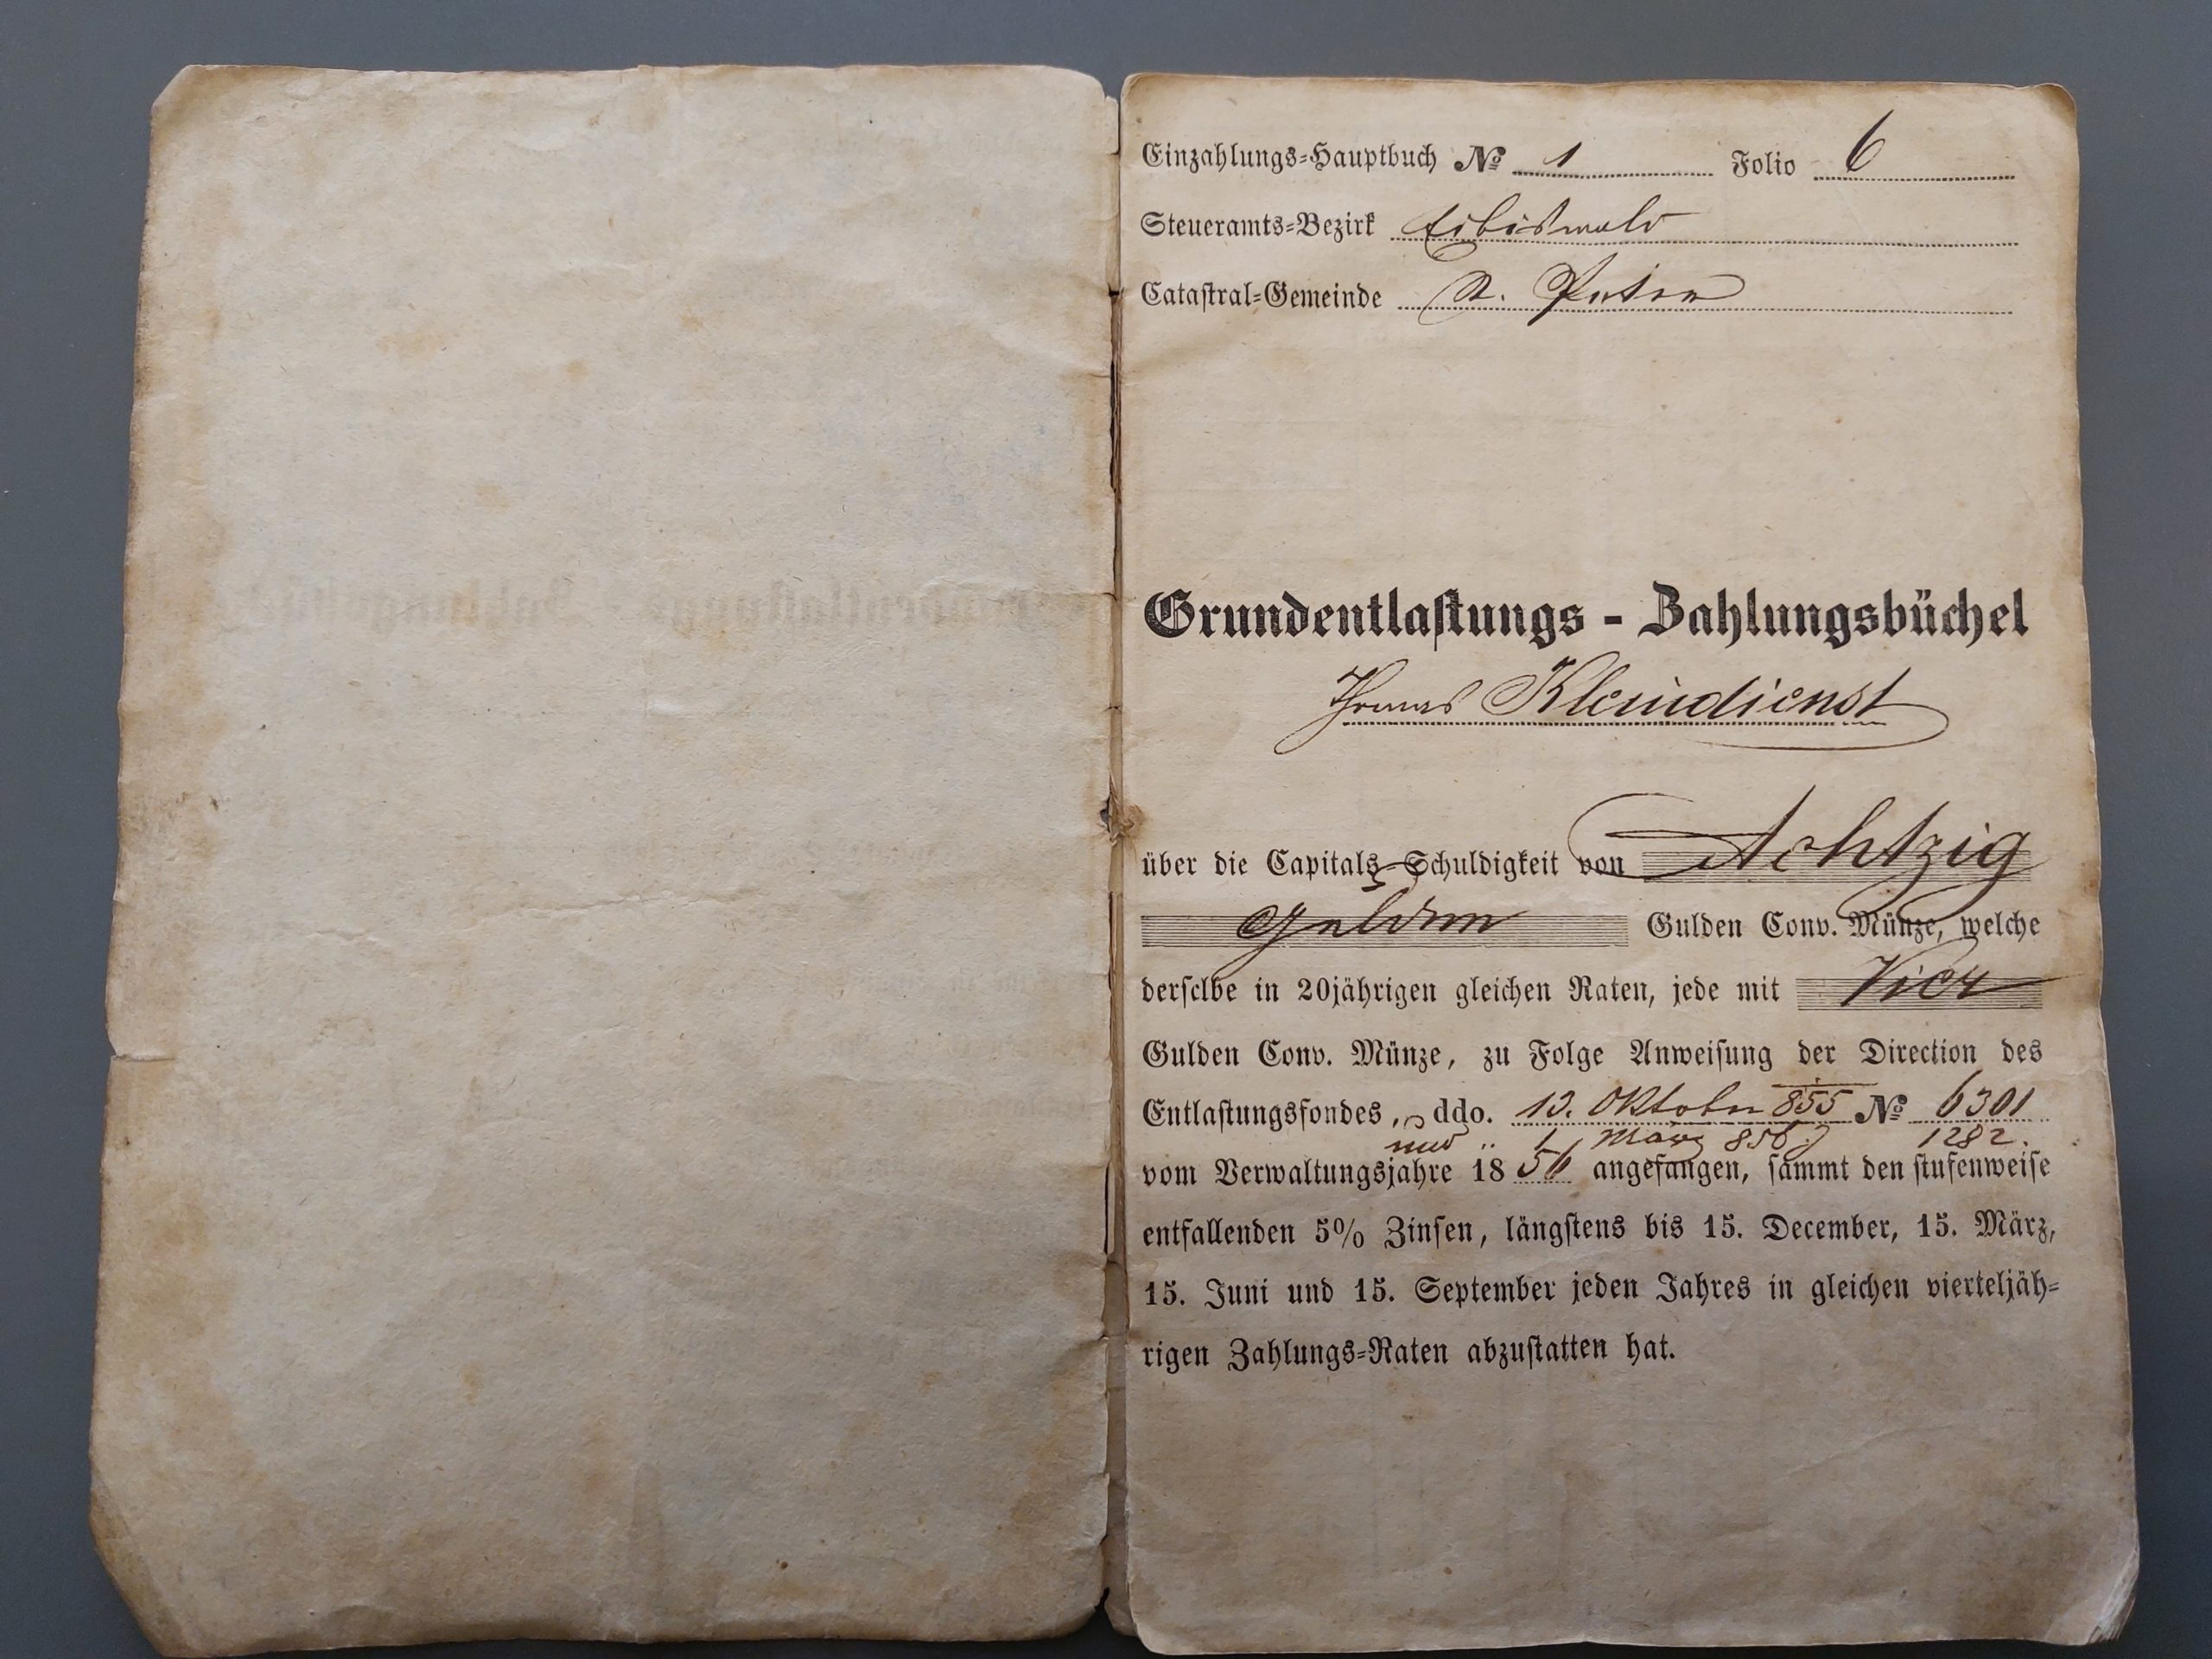 Einzahlungs-Hauptbuch № 1 Folio 6
Steueramts-Bezirk Eibiswald
Catastral-Gemeinde St. Peter
Grundentlastungs - Zahlungsbüchel
Thomas Kleindienst
über die Capitals-Schuldigkeit von Achtzig
Gulden Gulden Conv. Münze, welche
derselbe in 20jährigen gleichen Raten, jede mit Vier
Gulden Conv. Münze, zu Folge Anweisung der Direction des
Entlastungsfondes, ddo. 13. Oktober 855 № 6301
und " 1. März 856 1282.
vom Verwaltungsjahre 1856 angefangen, sammt den stufenweise
entfallenden 5% Zinsen, längstens bis 15. December, 15. März,
15. Juni und 15. September jeden Jahres in gleichen vierteljäh-
rigen Zahlungs-Raten abzustatten hat.